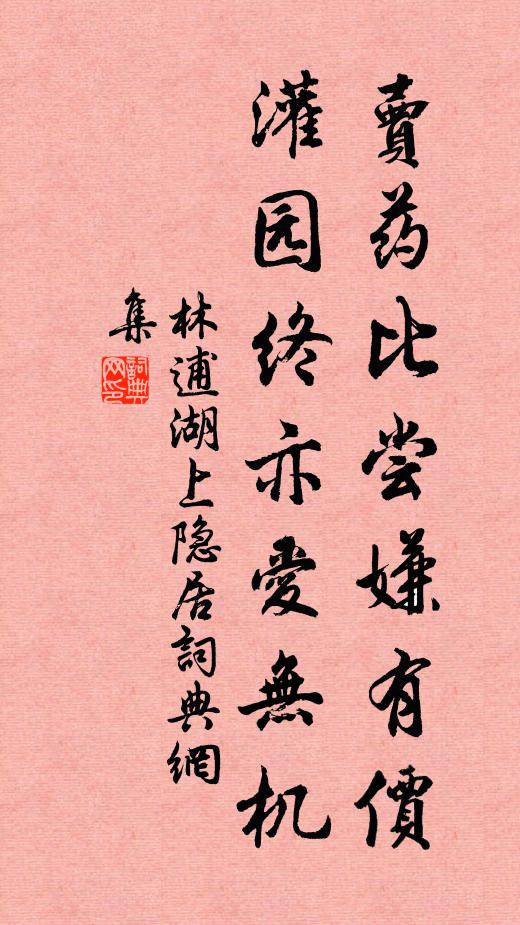 賣药比尝嫌有價
灌园终亦愛無机
林逋湖上隐居詞典網
集
詞典网印